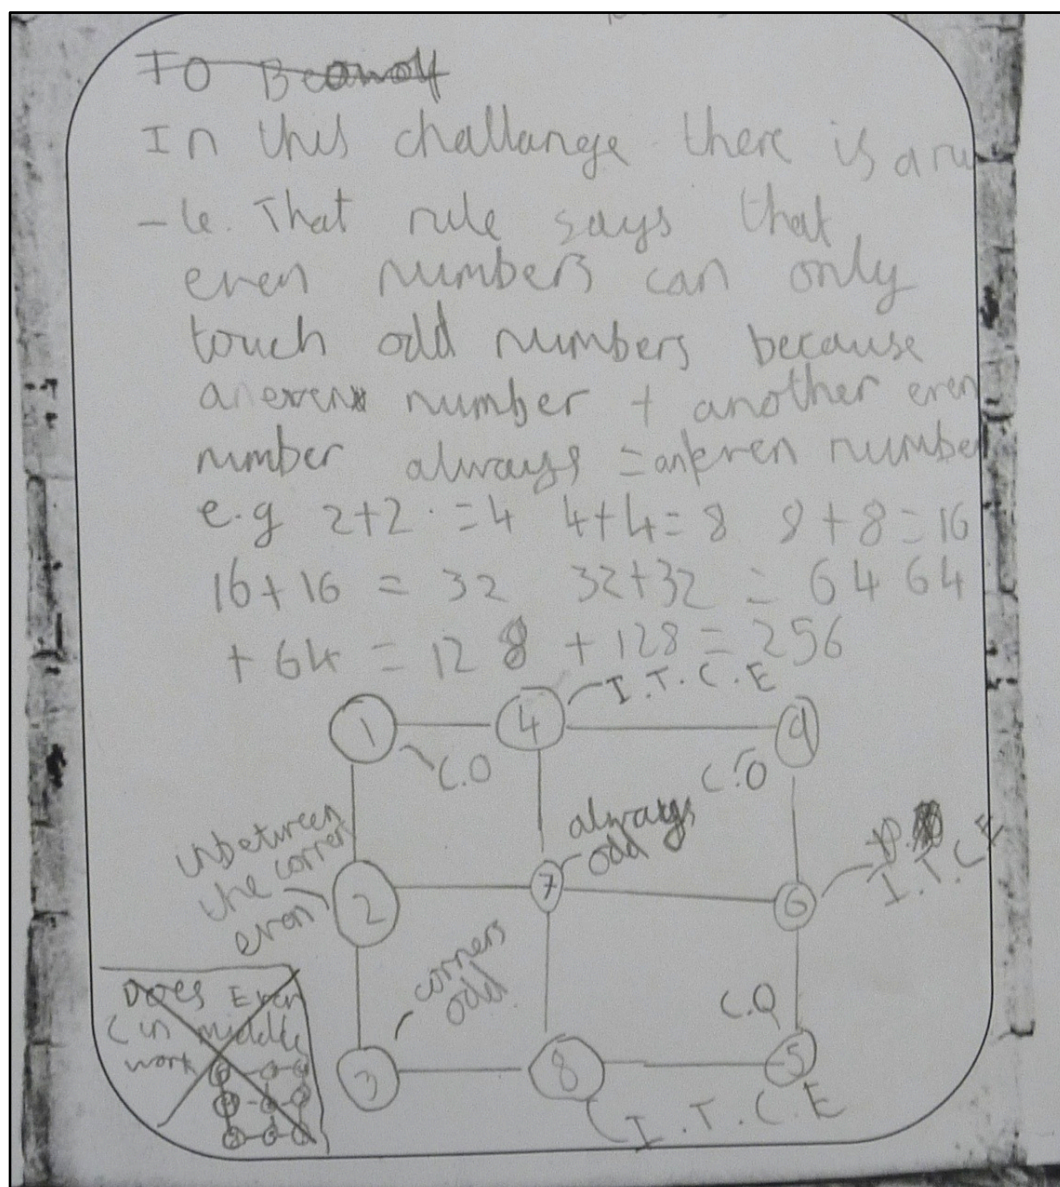 TO
In this challange there is a ru
-le. That rule says that
even numbers can only
touch odd numbers because
an even number + another even
number always = an even number
e.g 2+2 = 4 4+4 = 8 8+8 = 16
16+16 = 32 32+32 = 64 64
+ 64 = 128 + 128 = 256
I.T.C.E
1 4 9
C.O C.O
always
odd
inbetween
the corner
even
2 7 6
I.T.C.E
corners
odd
C.O
3 8 5
I.T.C.E
Does Even
in middle
work